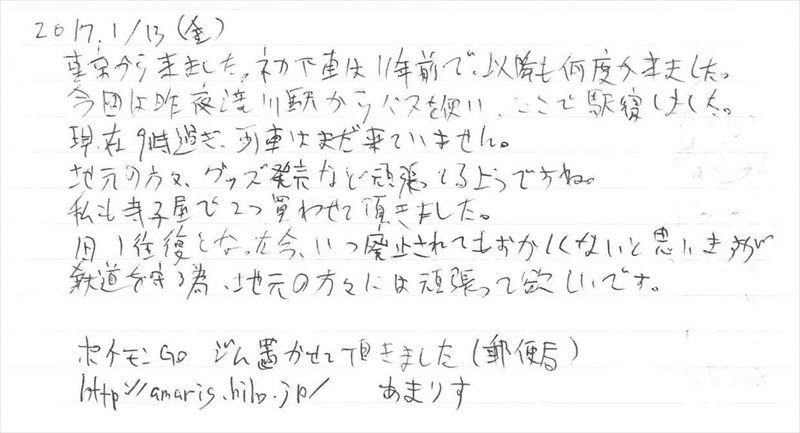 2017.1/13(金)
東京から来ました。初下車は11年前で、以降も何度か来ました。
今回は昨夜滝川駅からバスを使い、ここで駅寝しました。
現在9時過ぎ、列車はまだ来ていません。
地元の方々、グッズ発売など頑張ってるようですね。
私も寺子屋で2つ買わせて頂きました。
1日1往復となった今、いつ廃止されてもおかしくないと思いますが
鉄道を守る為、地元の方々には頑張って欲しいです。
ポケモンGO ジム置かせて頂きました(郵便局)
http://amaris.hilo.jp/ あまりす